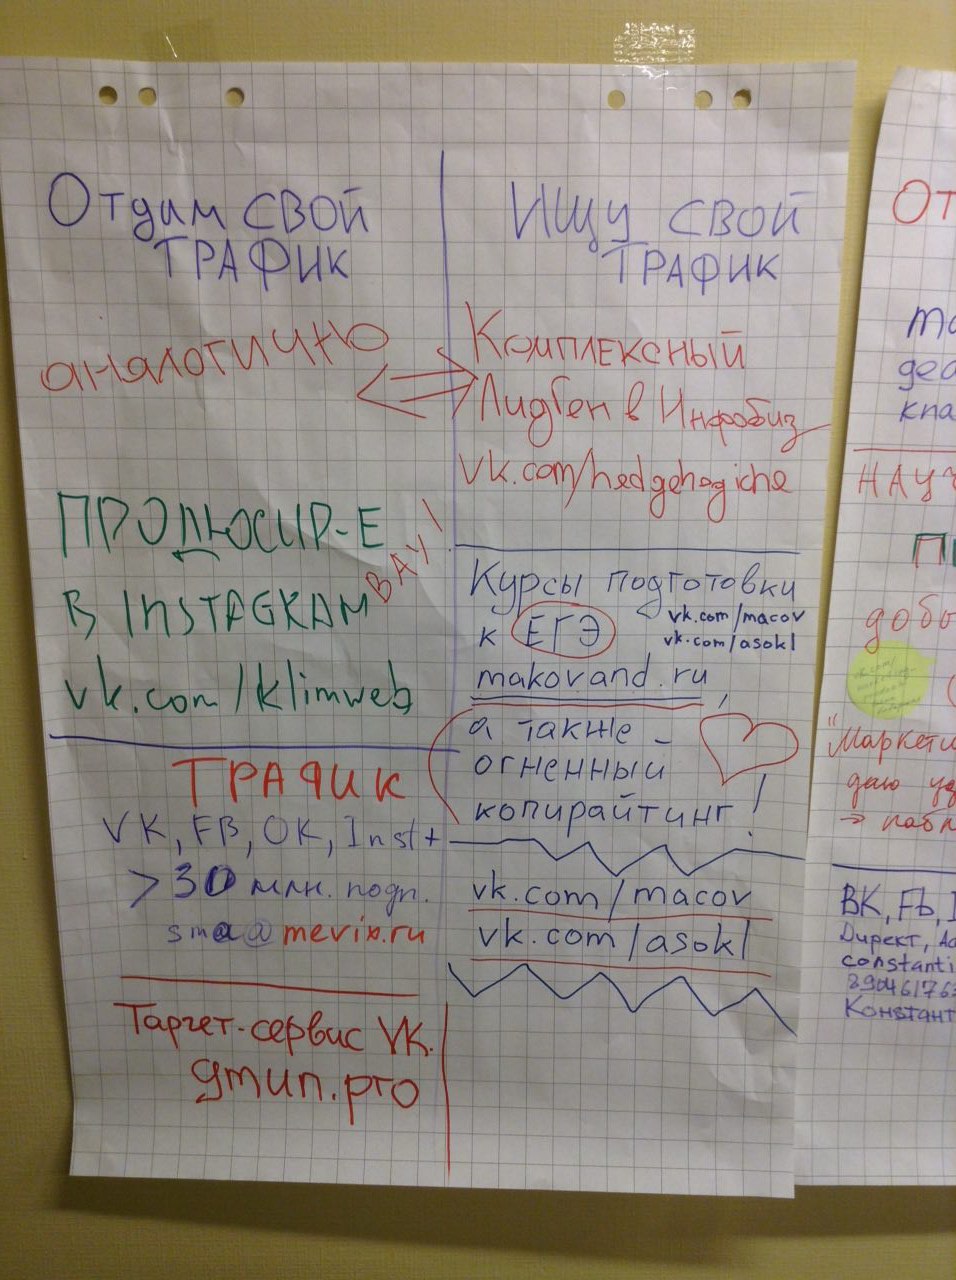 Отдам свой
трафик
аналогично
ПРОДЮСИР-Е
ВАУ!
В INSTAGRAM
vk.com/klimweb
ТРАФИК
VK, FB, OK, Inst+
>30 млн. подп.
mevix.ru
Таргет-сервис VK.
Ищу свой
трафик
Комплексный
Лидген в Инфобиз
vk.com/hedgehogiche
Курсы подготовки
к ЕГЭ
vk.com/macov
vk.com/asokl
makovand.ru,
а также
огненный
копирайтинг!
vk.com/macov
vk.com/asokl
От
НАУЧ
добы
"Маркети
даю
ВК, Fb,
Директ,
constanti
Констант